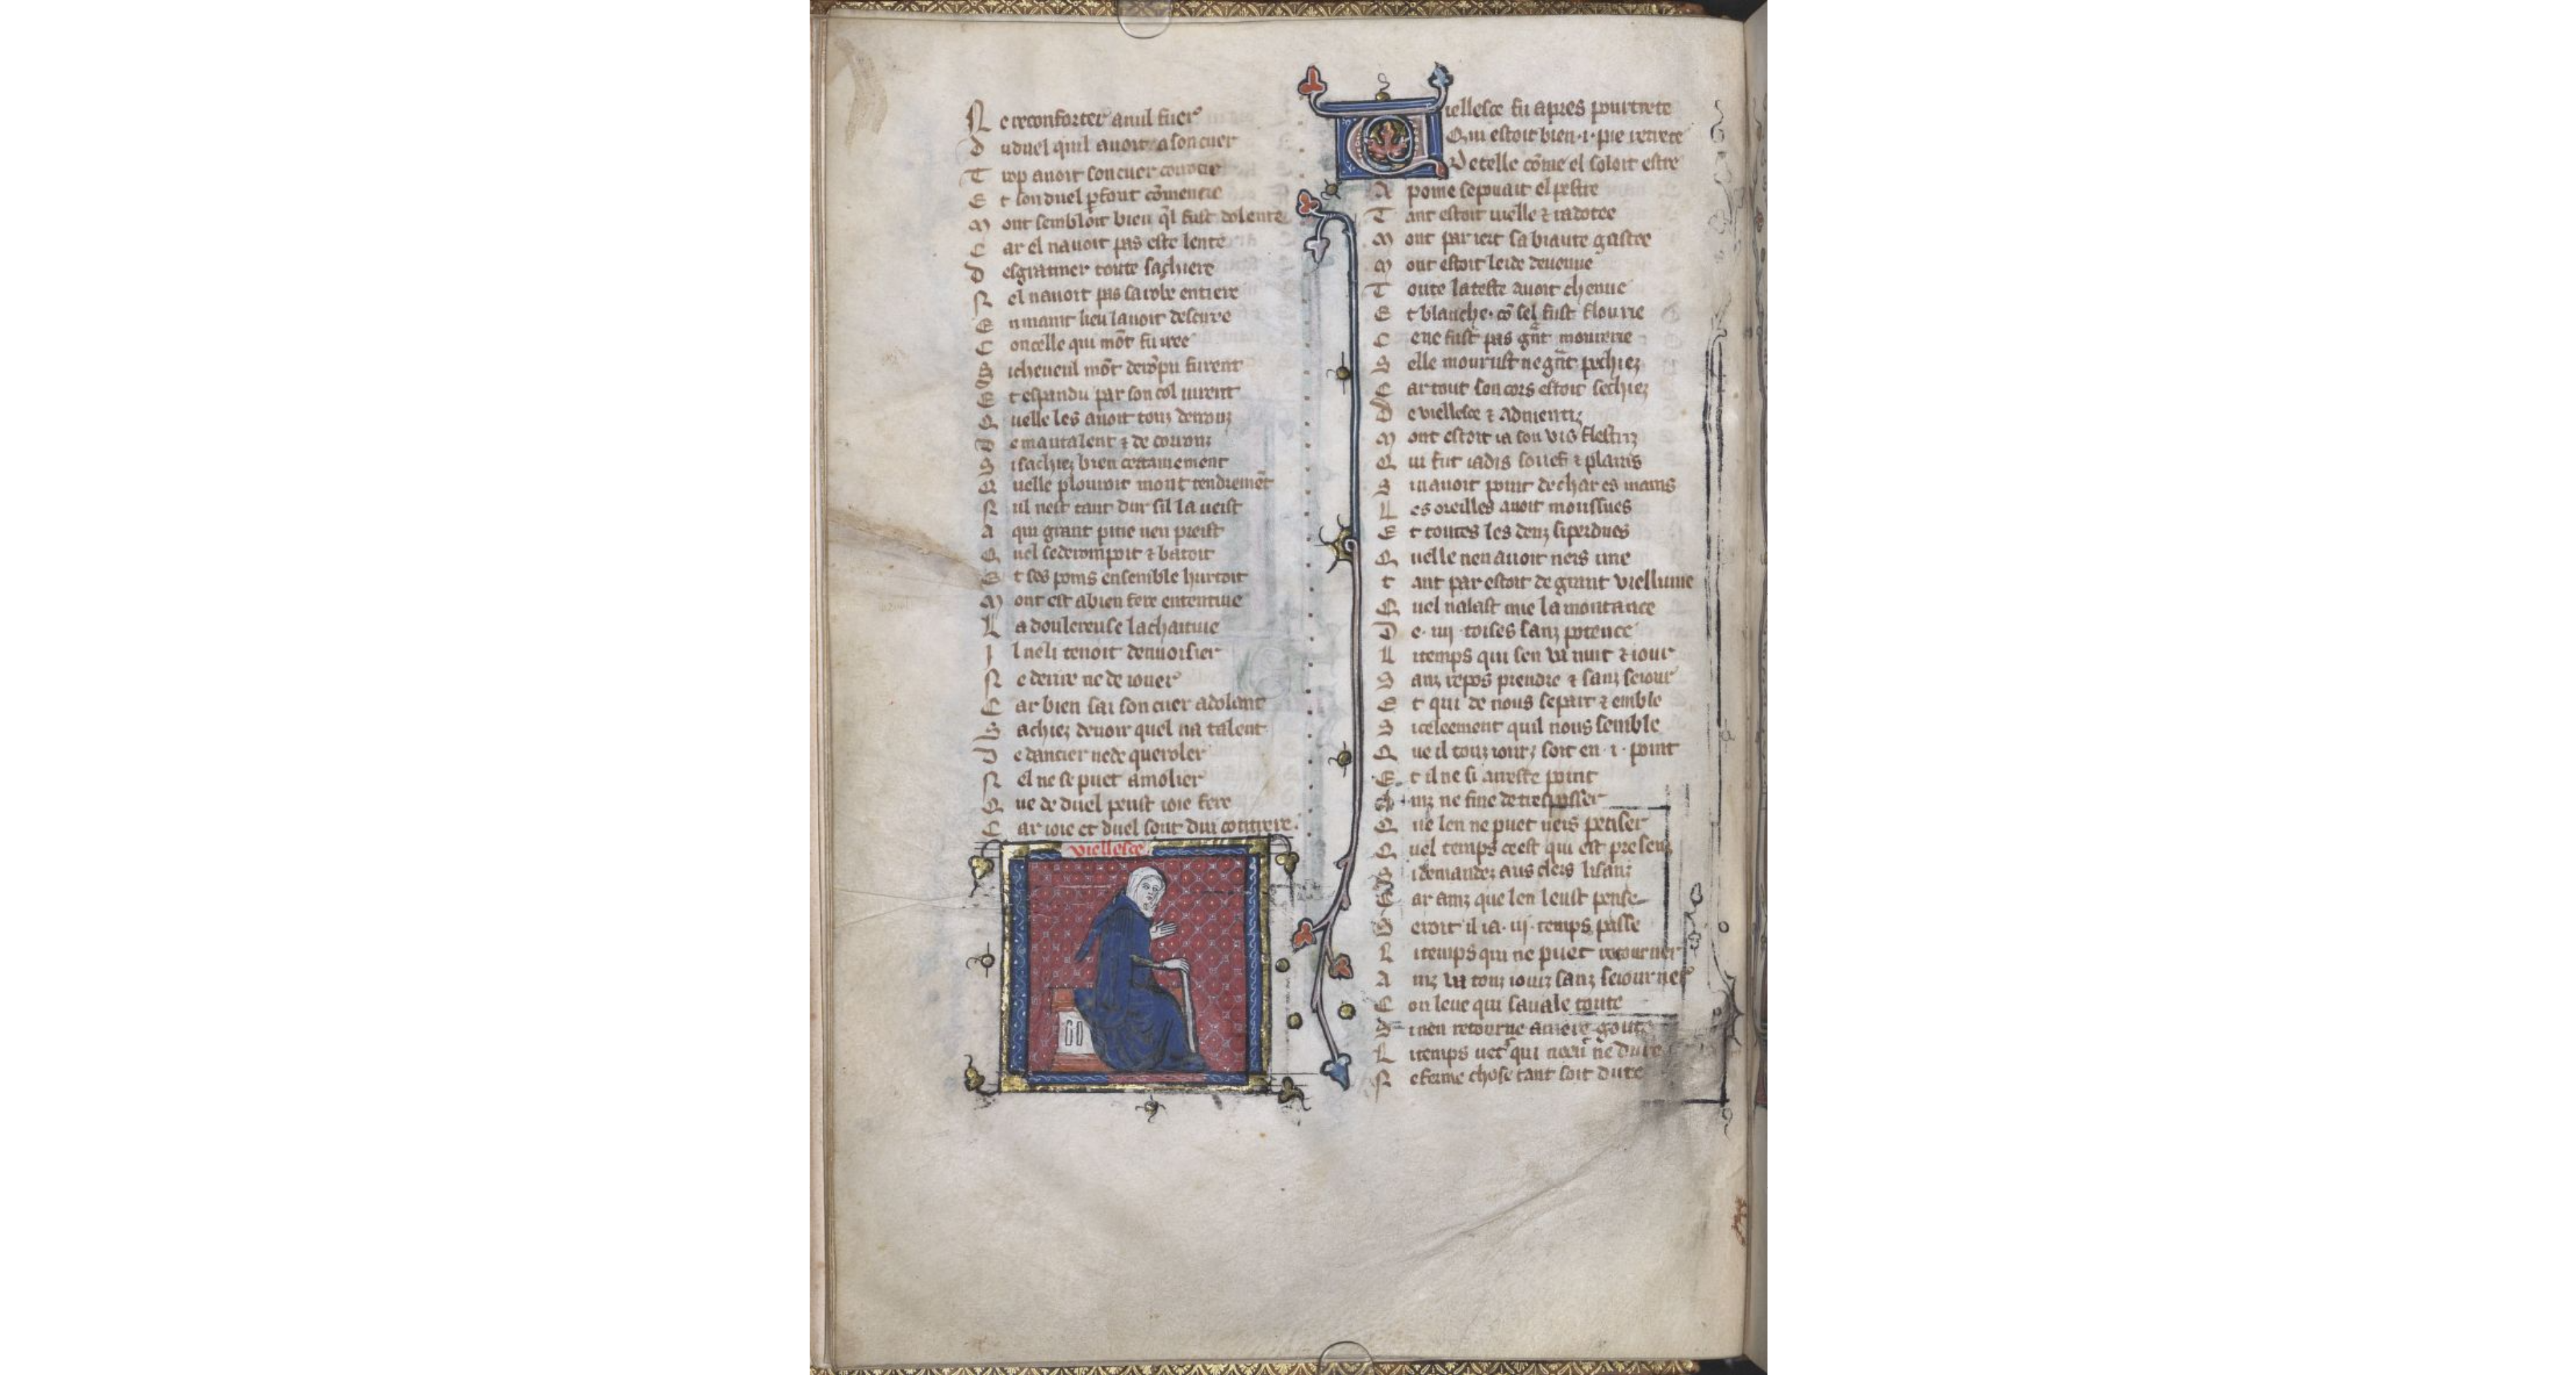 Ne reconforter a nul fuer
du duel quil auoit a son cuer
Trop auoit son cuer
Et son duel pfont cōmencie
Mont sembloit bien ql fust dolente
Car el nauoit pas este lente
desgratiner toute sa chiere
Nel nauoit pas sa robe entiere
En maint lieu lauoit descire
Con celle qui mōt fu iree
Si cheueul mōt derōpu furent
Et espandu par son col iurent
Quelle les auoit touz derrouz
De mautalent ⁊ de courouz
Si sachiez bien certainement
Quelle plouroit mont tendremēt
Nul nest tant dur sil la ueist
A qui grant pitie nen preist
Quel se derompoit ⁊ batoit
Et ses poins ensemble hurtoit
Mont est a bien fere ententiue
La doulereuse la chaitiue
Il ne li tenoit denuoisier
Ne de rire ne de iouer
Car bien sai son cuer a dolant
Sachiez de uoir quel na talent
De dancier ne de queroler
Nel ne se puet amolier
Que de duel peust ioie fere
Car ioie et duel sont dui contrere
viellesce
Viellesce fu apres pourtrete
Qui estoit bien ·i· pie retrete
De telle cōme el soloit estre
A pome se pouait el pestre
Tant estoit uielle ⁊ radotee
Mont par iert sa biaute gastee
Mont estoit leide deuenue
Toute la teste auoit chenue
Et blanche cō sel fust flourie
Ce ne fust pas gnt mourerie
Selle mourust ne gnt pechiez
Car tout son cors estoit sechiez
De viellesce ⁊ admentiz
Mont estoit ia son vis flestriz
Qui fut iadis souef ⁊ plains
Si nauoit point de char es mains
Les oreilles auoit moussues
Et toutes les denz si perdues
Quelle nen auoit neis une
tant par estoit de grant viellune
Quel nalast mie la montance
De ·iiij· toises sanz potence
Li temps qui sen va nuit ⁊ iour
Sanz repos prendre ⁊ sanz seiour
Et qui de nous se part ⁊ emble
Si celeement quil nous semble
Que il touz iourz soit en ·i· point
Et il ne si arreste point
Ainz ne fine de trespasser
Que len ne puet neis penser
Quel temps ce est qui est presenz
Si demandez aus clers lisanz
Car ainz que len leust pense
Seroit il ia ·iij· temps passe
Li temps qui ne puet retourner
Ainz va touz iourz sanz seiourner
Con leue qui sauale toute
nen retourne arriere goute
Li temps uers qui ne dure
Ne ferme chose tant soit dure